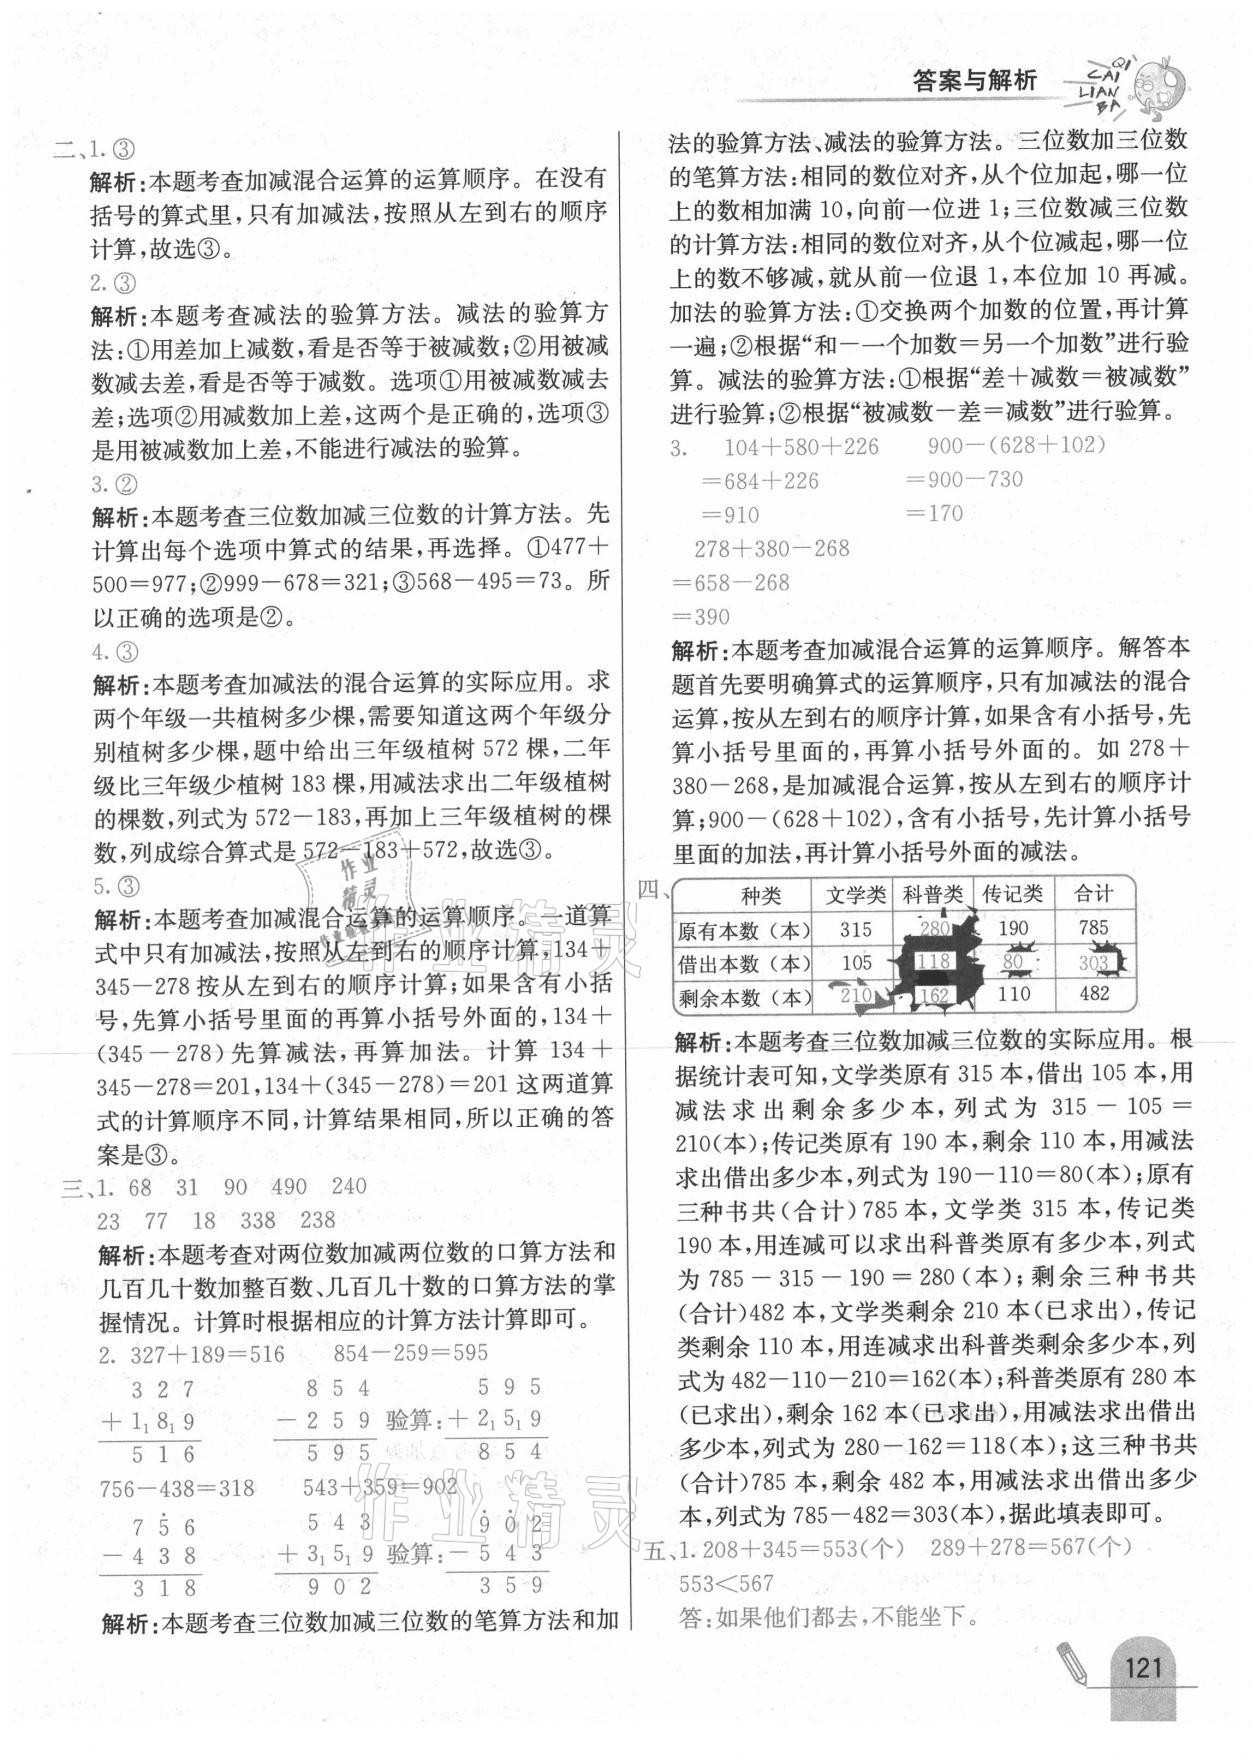 答案与解析
QI
CAI
LIAN
BA
二、1. ③
解析:本题考查加减混合运算的运算顺序。在没有
括号的算式里,只有加减法,按照从左到右的顺序
计算,故选③。
2. ③
解析:本题考查减法的验算方法。减法的验算方
法:①用差加上减数,看是否等于被减数;②用被减
数减去差,看是否等于减数。选项①用被减数减去
差;选项②用减数加上差,这两个是正确的,选项③
是用被减数加上差,不能进行减法的验算。
3. ②
解析:本题考查三位数加减三位数的计算方法。先
计算出每个选项中算式的结果,再选择。①477+
500=977;②999-678=321;③568-495=73。所
以正确的选项是②。
4. ③
解析:本题考查加减法的混合运算的实际应用。求
两个年级一共植树多少棵,需要知道这两个年级分
别植树多少棵,题中给出三年级植树 572 棵,二年
级比三年级少植树 183 棵,用减法求出二年级植树
的棵数,列式为 572-183,再加上三年级植树的棵
数,列成综合算式是 572-183+572,故选③。
5. ③
解析:本题考查加减混合运算的运算顺序。一道算
式中只有加减法,按照从左到右的顺序计算,134+
345-278 按从左到右的顺序计算;如果含有小括
号,先算小括号里面的再算小括号外面的,134+
(345-278)先算减法,再算加法。计算 134+
345-278=201,134+(345-278)=201 这两道算
式的计算顺序不同,计算结果相同,所以正确的答
案是③。
三、1. 68 31 90 490 240
23 77 18 338 238
解析:本题考查对两位数加减两位数的口算方法和
几百几十数加整百数、几百几十数的口算方法的掌
握情况。计算时根据相应的计算方法计算即可。
2. 327+189=516 854-259=595
3 2 7 8 5 4 5 9 5
+ 1₁ 8₁ 9 - 2 5 9 验算:+ 2₁ 5₁ 9
5 1 6 5 9 5 8 5 4
756-438=318 543+359=902
7 5̇ 6 5 4 3 9̇ 0̇ 2
- 4 3 8 + 3₁ 5₁ 9 验算:- 5 4 3
3 1 8 9 0 2 3 5 9
解析:本题考查三位数加减三位数的笔算方法和加
法的验算方法、减法的验算方法。三位数加三位数
的笔算方法:相同的数位对齐,从个位加起,哪一位
上的数相加满 10,向前一位进 1;三位数减三位数
的计算方法:相同的数位对齐,从个位减起,哪一位
上的数不够减,就从前一位退 1,本位加 10 再减。
加法的验算方法:①交换两个加数的位置,再计算
一遍;②根据“和-一个加数=另一个加数”进行验
算。减法的验算方法:①根据“差+减数=被减数”
进行验算;②根据“被减数-差=减数”进行验算。
3. 104+580+226 900-(628+102)
=684+226 =900-730
=910 =170
278+380-268
=658-268
=390
解析:本题考查加减混合运算的运算顺序。解答本
题首先要明确算式的运算顺序,只有加减法的混合
运算,按从左到右的顺序计算,如果含有小括号,先
算小括号里面的,再算小括号外面的。如 278+
380-268,是加减混合运算,按从左到右的顺序计
算;900-(628+102),含有小括号,先计算小括号
里面的加法,再计算小括号外面的减法。
四、 种类 文学类 科普类 传记类 合计
原有本数(本) 315 280 190 785
借出本数(本) 105 118 80 303
剩余本数(本) 210 162 110 482
解析:本题考查三位数加减三位数的实际应用。根
据统计表可知,文学类原有 315 本,借出 105 本,用
减法求出剩余多少本,列式为 315-105=
210(本);传记类原有 190 本,剩余 110 本,用减法
求出借出多少本,列式为 190-110=80(本);原有
三种书共(合计)785 本,文学类 315 本,传记类
190 本,用连减可以求出科普类原有多少本,列式
为 785-315-190=280(本);剩余三种书共
(合计)482 本,文学类剩余 210 本(已求出),传记
类剩余 110 本,用连减求出科普类剩余多少本,列
式为 482-110-210=162(本);科普类原有 280 本
(已求出),剩余 162 本(已求出),用减法求出借出
多少本,列式为 280-162=118(本);这三种书共
(合计)785 本,剩余 482 本,用减法求出借出多少
本,列式为 785-482=303(本),据此填表即可。
五、1. 208+345=553(个) 289+278=567(个)
553<567
答:如果他们都去,不能坐下。
121
作业精灵
作业精灵
作业精灵